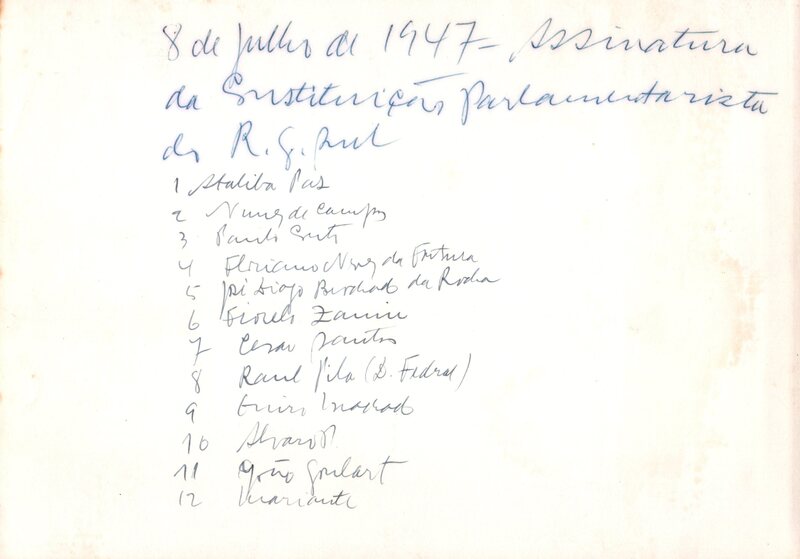 8 de Julho de 1947 - Assinatura
da Constituição Parlamentarista
do R. G. Sul
1 Ataliba Paz
2 Nunes de Campos
3 Paulo Couto
4 Floriano Neves da Fontoura
5 José Diogo Brochado da Rocha
6 Fiorelo Zanin
7 Cesar Santos
8 Raul Pila (D. Federal)
9
10 Alvaro
11 João Goulart
12 Mariante